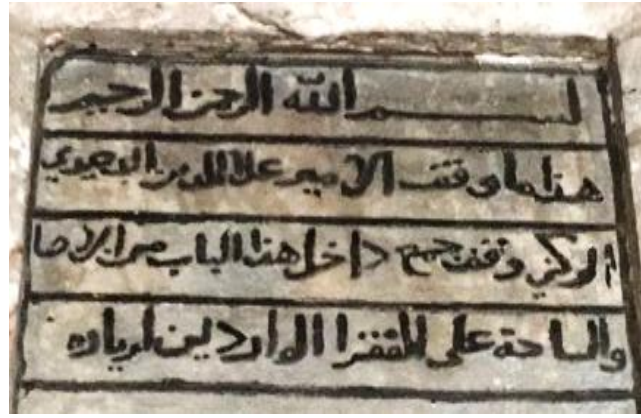 بسم الله الرحمن الرحيم
هذا ما وقف الامير علا الدين
الركني وقف جميع داخل هذا الباب من
والساحة على الفقرا الواردين لزيارة